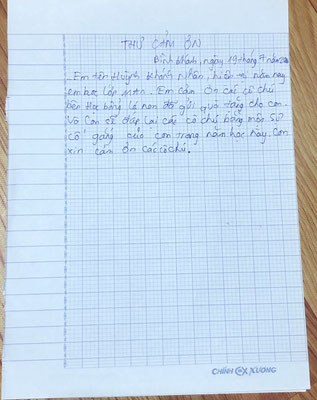 THƯ CẢM ƠN
Bình khánh, ngày 19 tháng 7 năm
- Em tên Huỳnh Khánh Nhân, hiện tại năm nay
em học lớp. Em cảm ơn các cô chú
bên Học bổng lá non đã gửi quà tặng cho con.
Và con sẽ đáp lại các cô chú bằng một sự
cố gắng của con trong năm học này. Con
xin cảm ơn các cô chú.
CHÍNH XƯƠNG